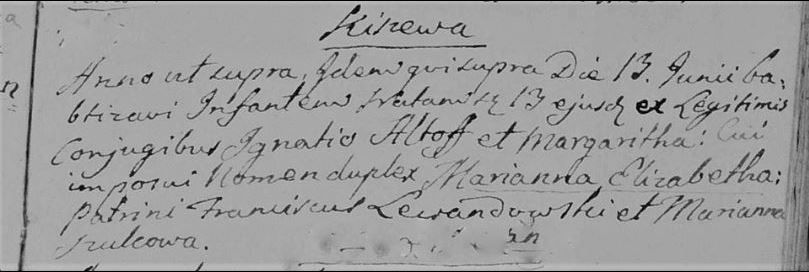 Kiszewa
Anno ut supra, Idem qui supra Die 13. Junii ba-
btizavi Infantem natam 13 ejusd ex Legitimis
Conjugibus Ignatio Altoff et Margaritha: Cui
imposui Nomen duplex Marianna Elizabetha:
Patrini Franciscus Lewandowski et Marianna
Szulcowa.